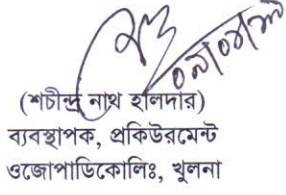 (শচীন্দ্র নাথ হালদার)
ব্যবস্থাপক, প্রকিউরমেন্ট
ওজোপাডিকোলিঃ, খুলনা